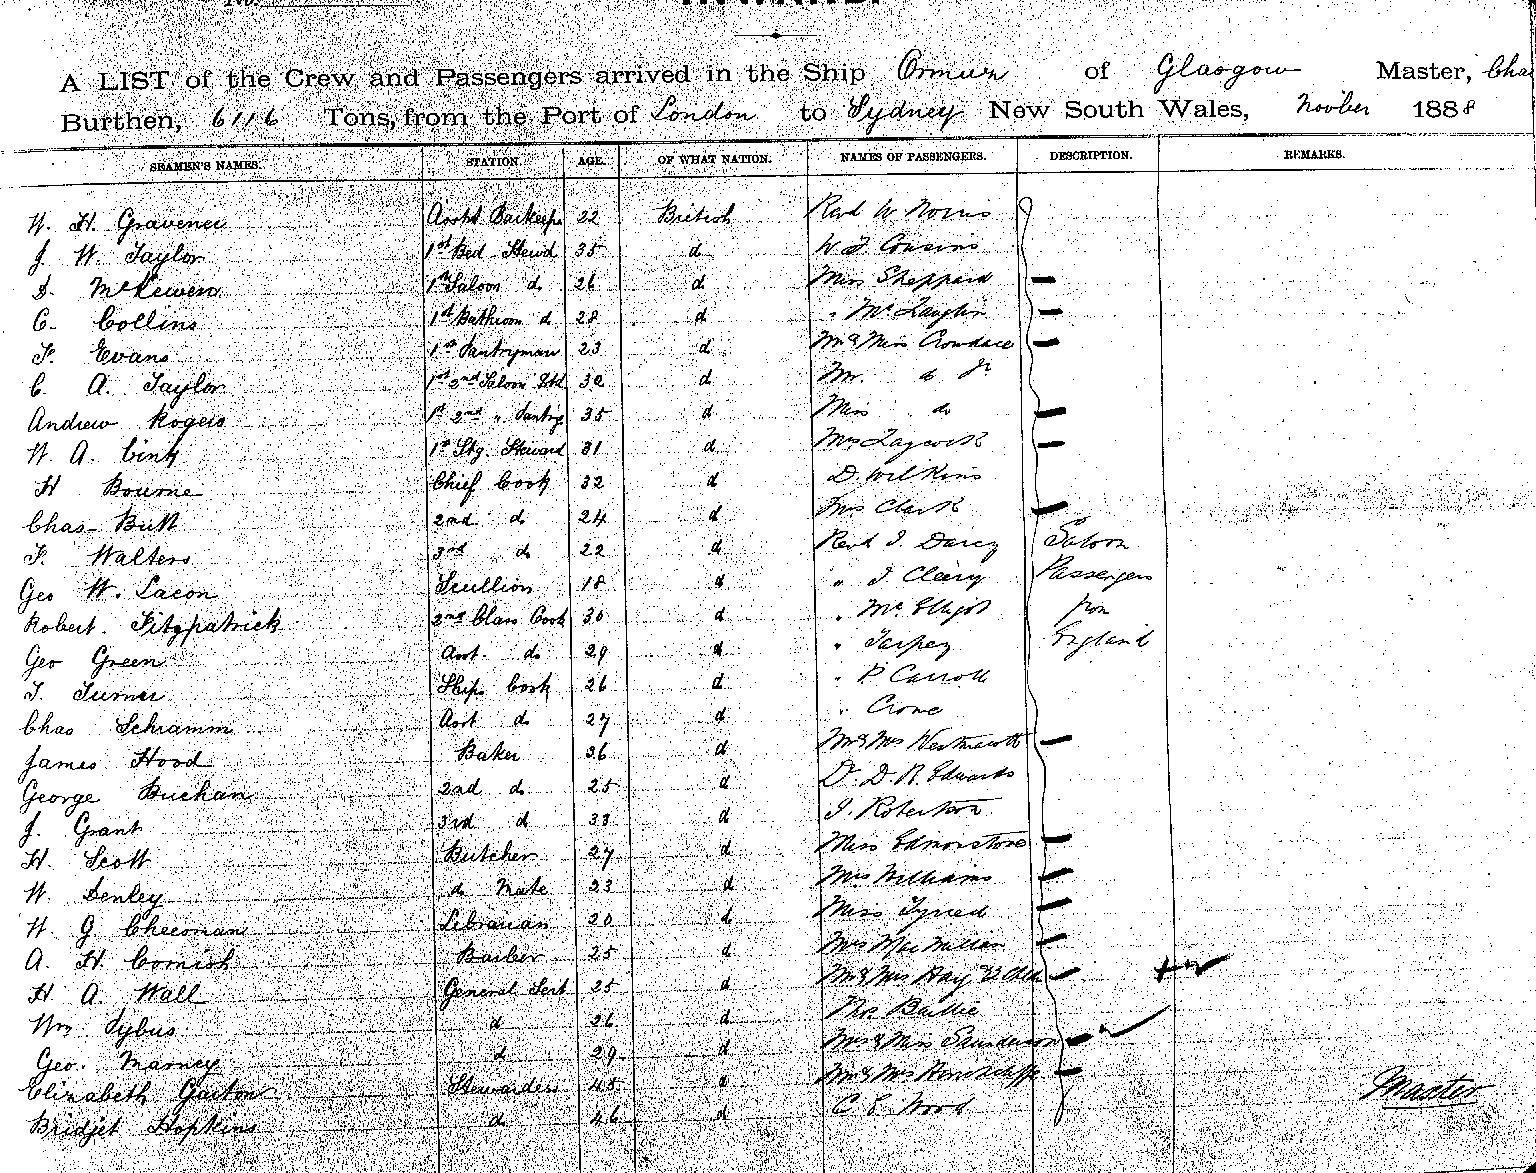 A LIST of the Crew and Passengers arrived in the Ship Ormuz of Glasgow Master, Chas
Burthen, 6116 Tons, from the Port of London to Sydney New South Wales, Novber 1888
SEAMEN'S NAMES. STATION. AGE. OF WHAT NATION. NAMES OF PASSENGERS. DESCRIPTION. REMARKS.
W. H. Gravener Asst Barkeepr 22 British Revd W Norris
J. W. Taylor 1st Bed Stewd 35 d W J Cousins
D. McKewen 1st Saloon do 26 d Miss Sheppard
C. Collins 1st Bathroom d 28 d " McLaughlin
F. Evans 1st Pantryman 23 d Mr & Mrs Croudace
C. A. Taylor 1st 2nd Saloon Std 32 d Mr. do Jr
Andrew Rogers 1st 2nd " Pantry 35 d Miss do
W. A. 1st Stg. Steward 31 d Mrs Laycock
H Bourne Chief Cook 32 d D. Wilkins
Chas Butt 2nd do 24 d Mrs Clark
F. Walters 3rd do 22 d Revd J. Darcy Saloon
Geo W. Lacon Scullion 18 d " J Cleary Passengers
Robert Fitzpatrick 2nd Class Cook 30 d " from
Geo Green Asst. do 29 d " Tarpey England
T. Turner Ships Cook 26 d " P Carroll
Chas Schramm Asst do 27 d " Crone
James Hood Baker 36 d Mr & Mrs Westmacott
George Buchan 2nd do 25 d Dr. D. R. Edwards
J. Grant 3rd d 33 d J. Robertson
H. Scott Butcher 27 d Miss Edmonstone
W. Denley do Mate 23 d Mrs Williams
W. G. Cheesman Librarian 20 d Miss
A. H. Cornish Barber 25 d Mrs MacMillan
H A. Wall General Servt 25 d Mr & Mrs Hay
Wm Sybus d 26 d Baillie
Geo. Marney d 29 d Mrs & Miss Saunderson
Elizabeth Garton Stewardess 45 d Mr & Mrs
Bridjet Hopkins do 46 d C E Wood
Master